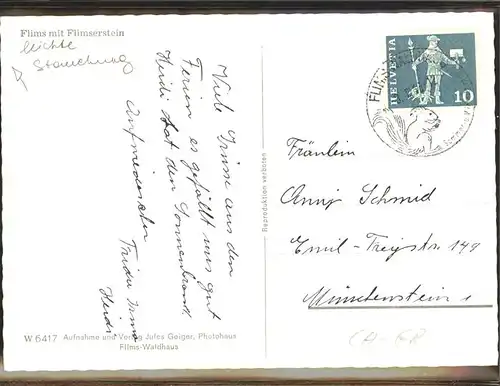 Flims mit Flimserstein
leichte
Stauchung
Viele Grüsse aus den
Ferien es gefällt uns gut
Heidi hat den Sonnenbrand.
Aufwiedersehen
Heidi
W 6417 Aufnahme und Verlag Jules Geiger, Photohaus
Flims-Waldhaus
Reproduktion verboten
HELVETIA
10
FLIMS
Fräulein
Anny Schmid
Emil-Freystr. 149
Münchenstein 1
CH-GR